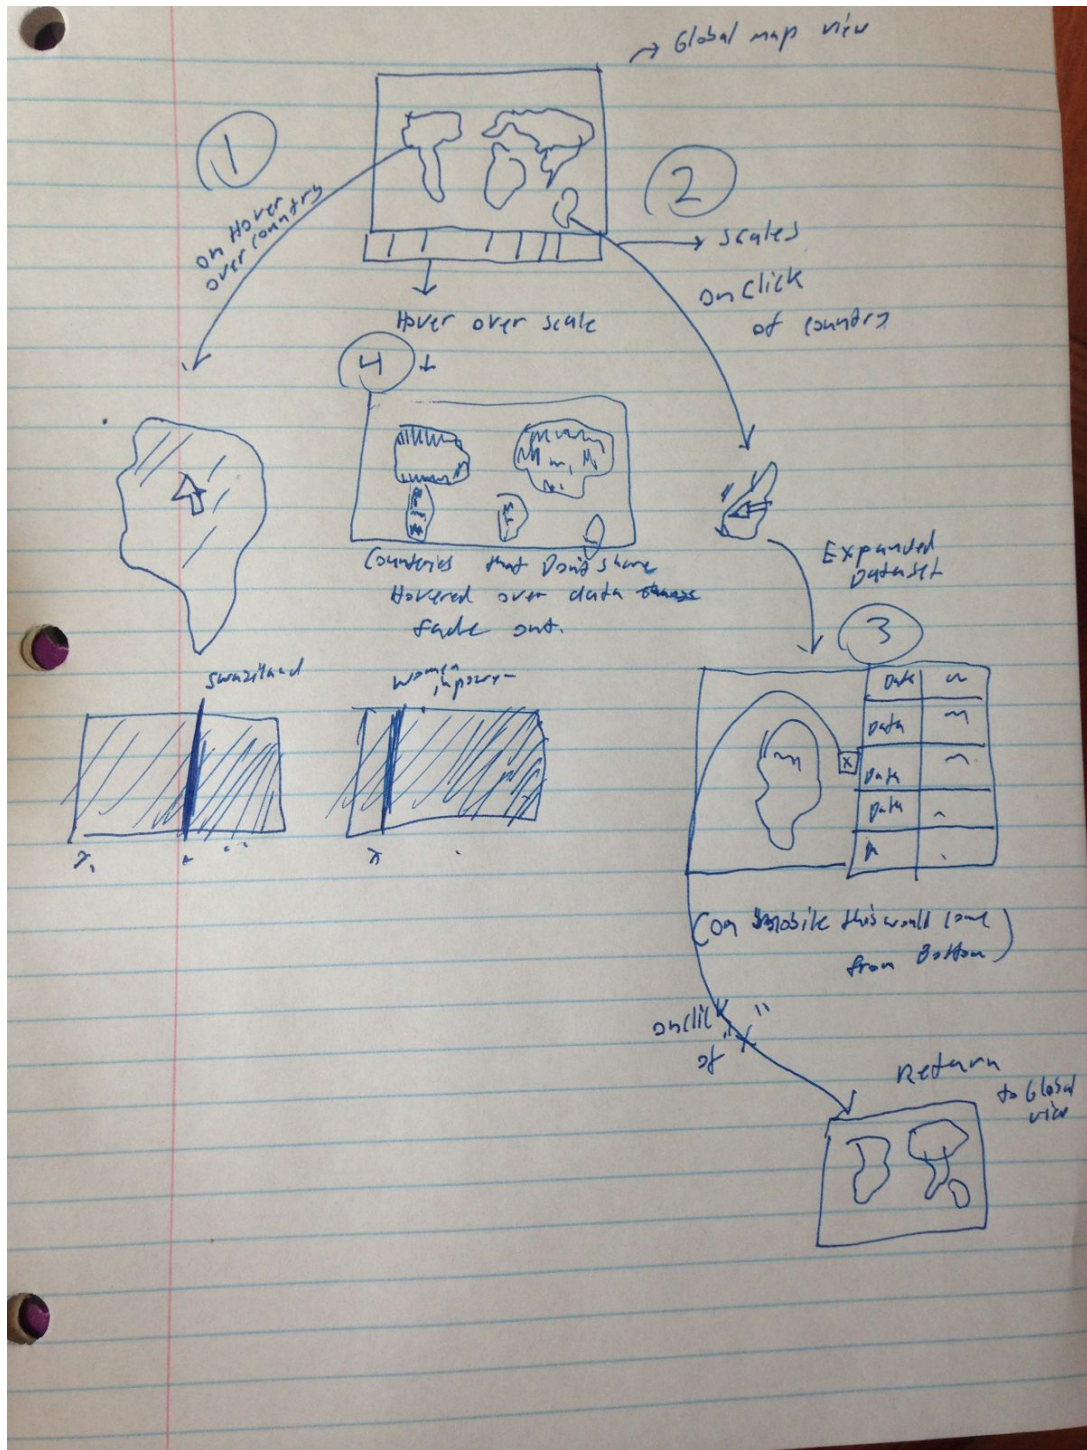 → Global map view
1
2
on Hover
over country
→ scales
on Click
of country
Hover over scale
4
Countries that Don't share
Hovered over data
fade out.
Expanded
Dataset
3
Swaziland
women
in power
Data
Data
Data
Data
D
x
(on mobile this would come
from Bottom)
onclick
of "x"
Return
to Global
view